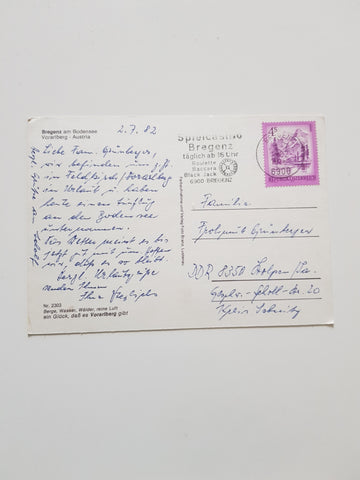 Bregenz am Bodensee
Vorarlberg - Austria
2.7.82
Liebe Fam. Grünberger,
wir befinden uns z.Zt.
in Feldkirch/Vorarlberg
im Urlaub u. haben
heute einen Ausflug
an den Bodensee
unternommen.
Das Wetter meint es bis
jetzt gut mit uns, hoffen
wir, daß es so bleibt.
Herzl. Urlaubsgrüße
senden Ihnen
Ihre
Nr. 2303
Berge, Wasser, Wälder, reine Luft
ein Glück, daß es Vorarlberg gibt
Spielcasino
Bregenz
täglich ab 16 Uhr
Roulette
Baccara
Black Jack
6900 BREGENZ
6900
4S
REPUBLIK ÖSTERREICH
Familie
Grünberger
DDR 8350 Stolpen/Sa.
20
Kreis Sebnitz